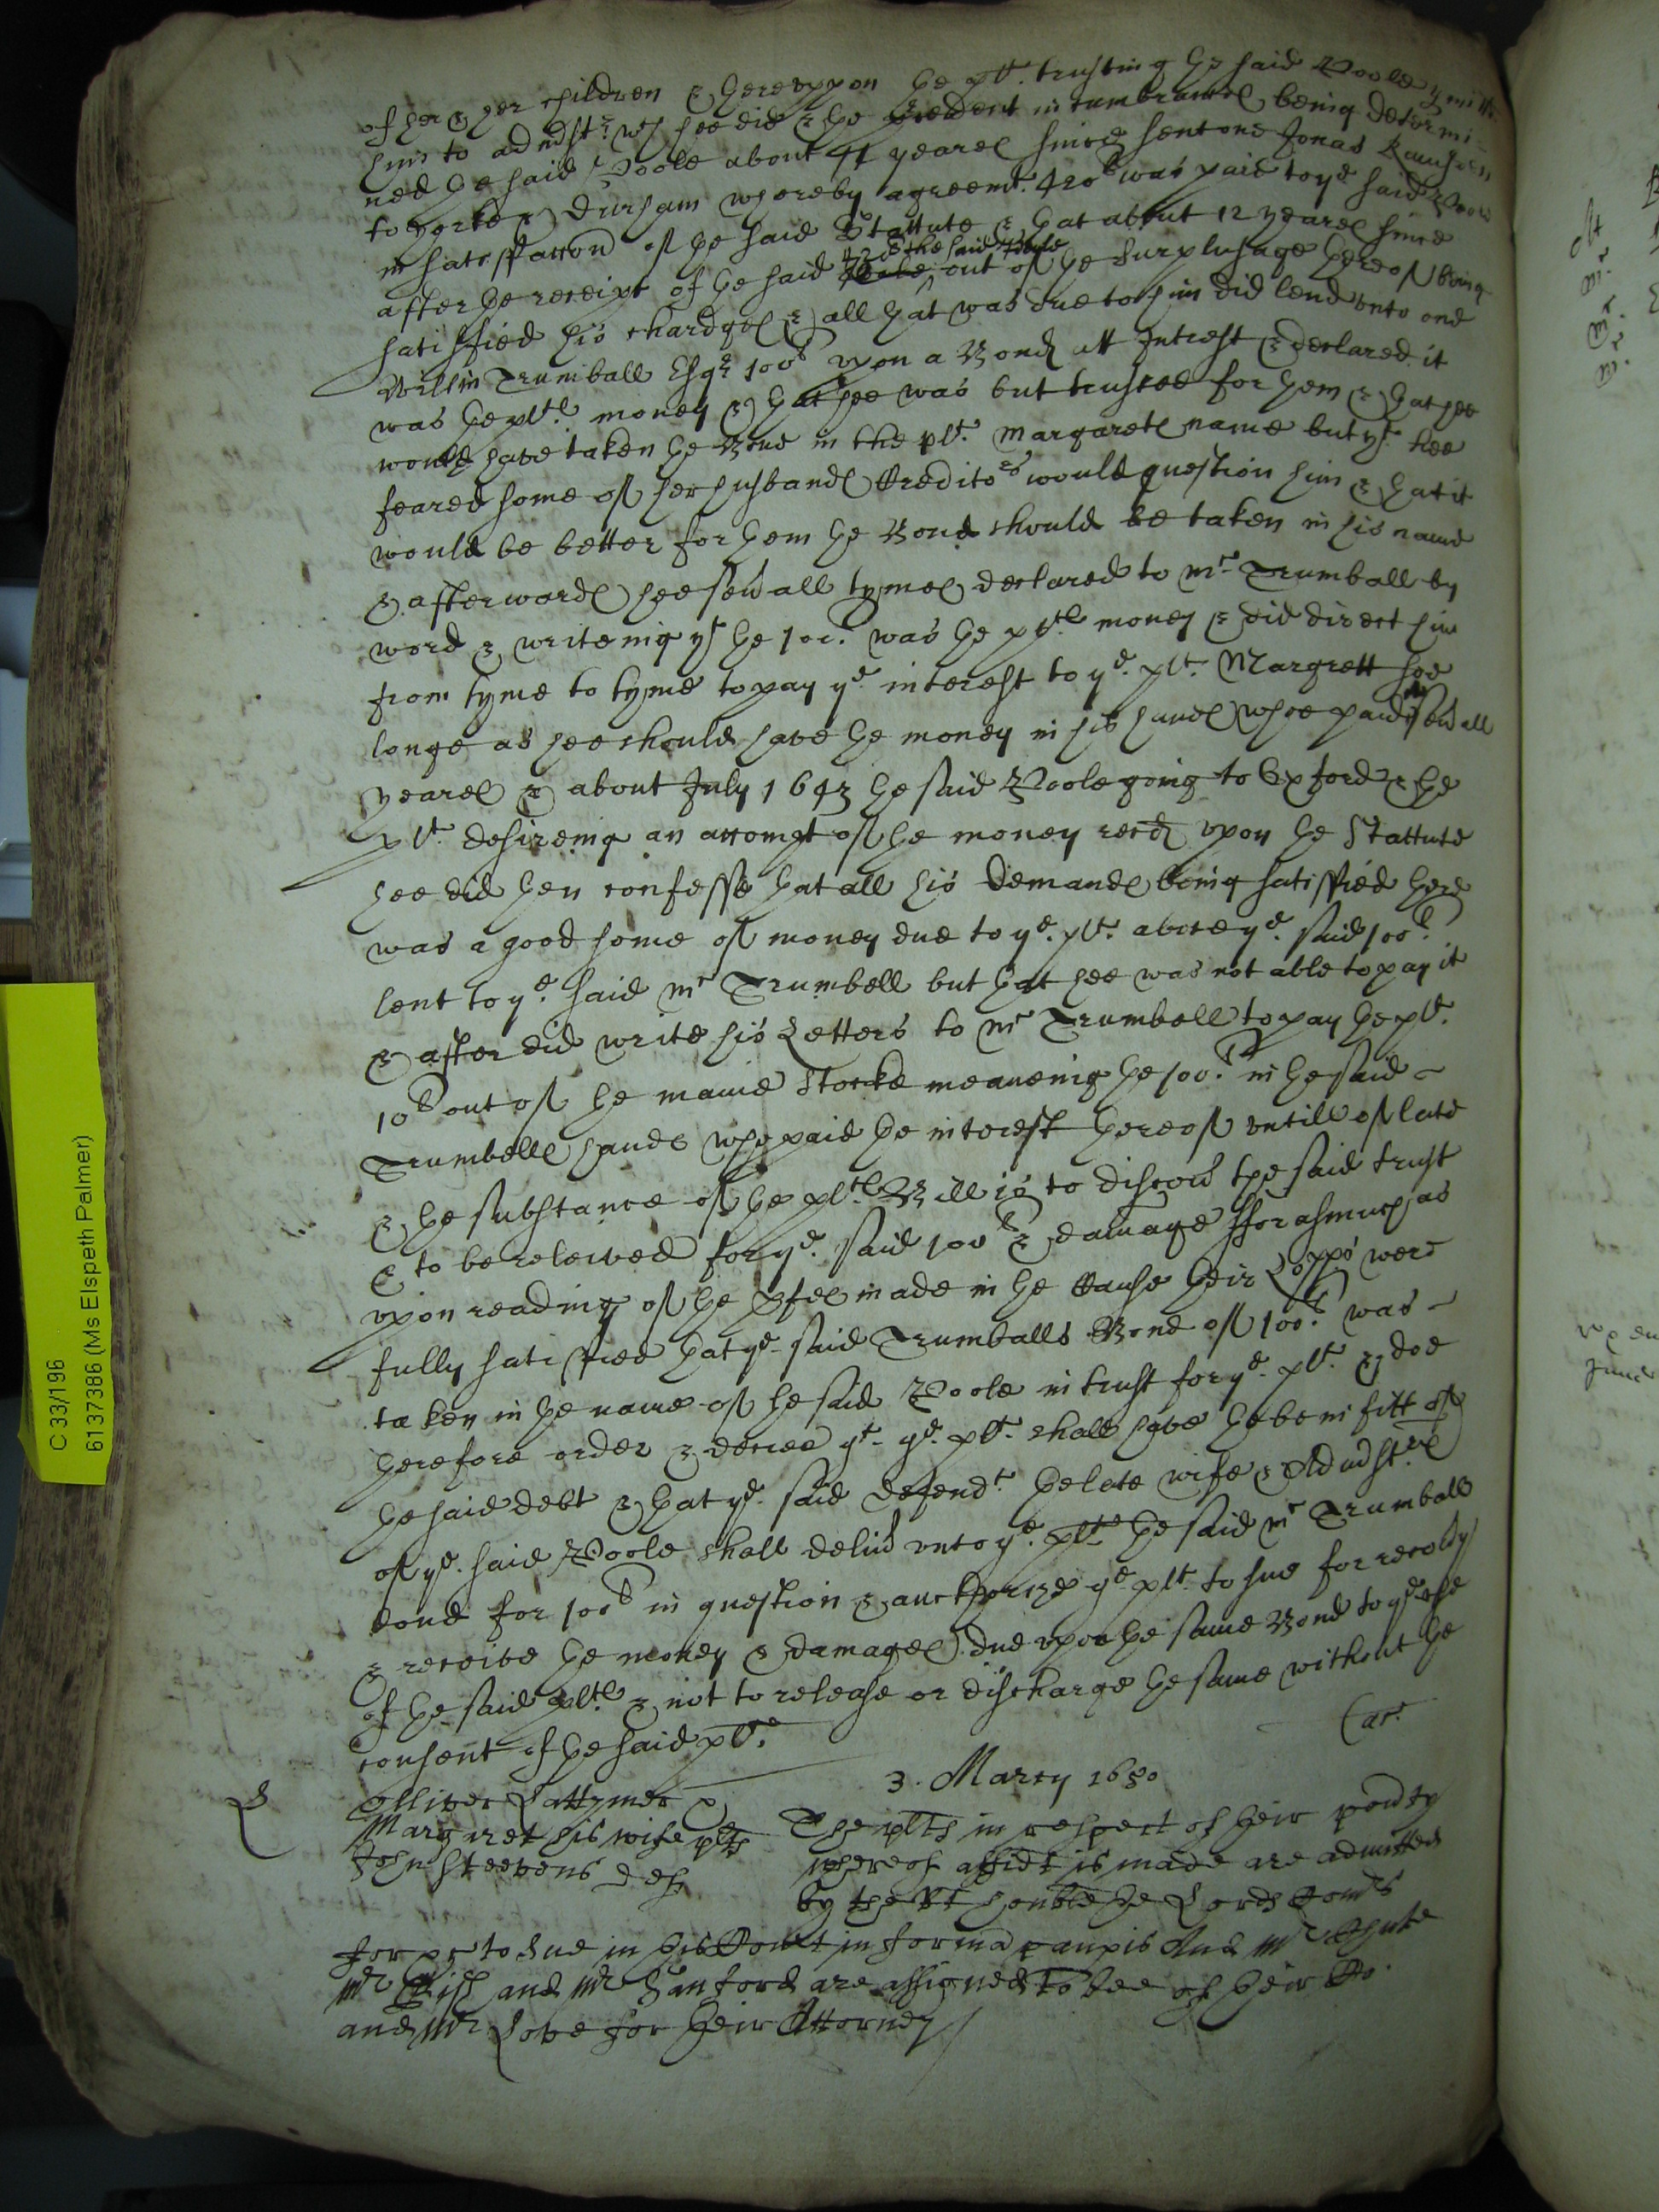 of her & her children & thereuppon the plt. trusting the said Poole ymitt
him to admst: wch hee did & the precedent incumbrances being determi-
ned the said Poole about 11 yeares since sent one Jonas
to Yorke & Durham whereby agreemt. 420l was paid to ye said Poole
in satisfaccon of the said Stattute & that about 12 yeares since
after the receipt of the said 420l the said Poole out of the surplusage thereof being
satisfied his chardges & all that was due to him did lend unto one
Willm Trumball Esqr 100l upon a Bond att Intrest & declared it
was the plts money & that hee was but trustee for them & that hee
would have taken the Bond in the plt. Margaretes name but yt hee
feared some of her husbandes Creditors would question him & that it
would be better for them the Bond should be taken in his name
& afterwardes hee sevall tymes declared to Mr Trumball by
word & writeing yt the 100l was the plts money & did direct him
from tyme to tyme to pay ye interest to ye plt. Margrett soe
longe as hee should have the money in his handes whoe paid it sevall
yeares & about July 1643 the said Poole going to Oxford & the
plt. desireing an accompt of the money recd upon the Stattute
hee did then confesse that all his demandes being satisfied there
was a good some of money due to ye plt. above ye said 100l
lent to ye said Mr Trumbell but that hee was not able to pay it
& after did write his Letters to Mr Trumbell to pay the plt.
10l out of the maine Stocke meaneing the 100l in the said
Trumbells hands who paid the interest thereof untill of late
& the substance of the plts Bill is to discov the said trust
& to be releived for ye said 100l & damage fforasmuch as
upon reading of the pfes made in the Cause their Lopps were
fully satisfied that ye said Trumballs Bond of 100l was
taken in the name of the said Poole in trust for ye plt. & doe
therefore order & decree yt ye plt. shall have the benifitt of
the said debt & that ye said Defendt the late wife & Admstr
of ye said Poole shall deliv unto ye plte the said Mr Trumballs
bond for 100l in question & aucthorize ye plt. to sue for recovy
& receive the money & damages due upon the same Bond to ye use
of the said plts & not to release or discharge the same without the
consent of the said plt.
L
3. March 1650
Olliver Lattymer &
Margaret his wife plts
John Steevens deft
The plts in respect of their povty
whereof affidt is made are admitted
by the Rt honble the Lords Comrs
for pr to sue in this Court in forma paupis And Mr Chute
Mr and Mr Sanford are assigned to bee of their Co.
and Mr Love for their Attorney
C 33/196
6137386 (Ms Elspeth Palmer)